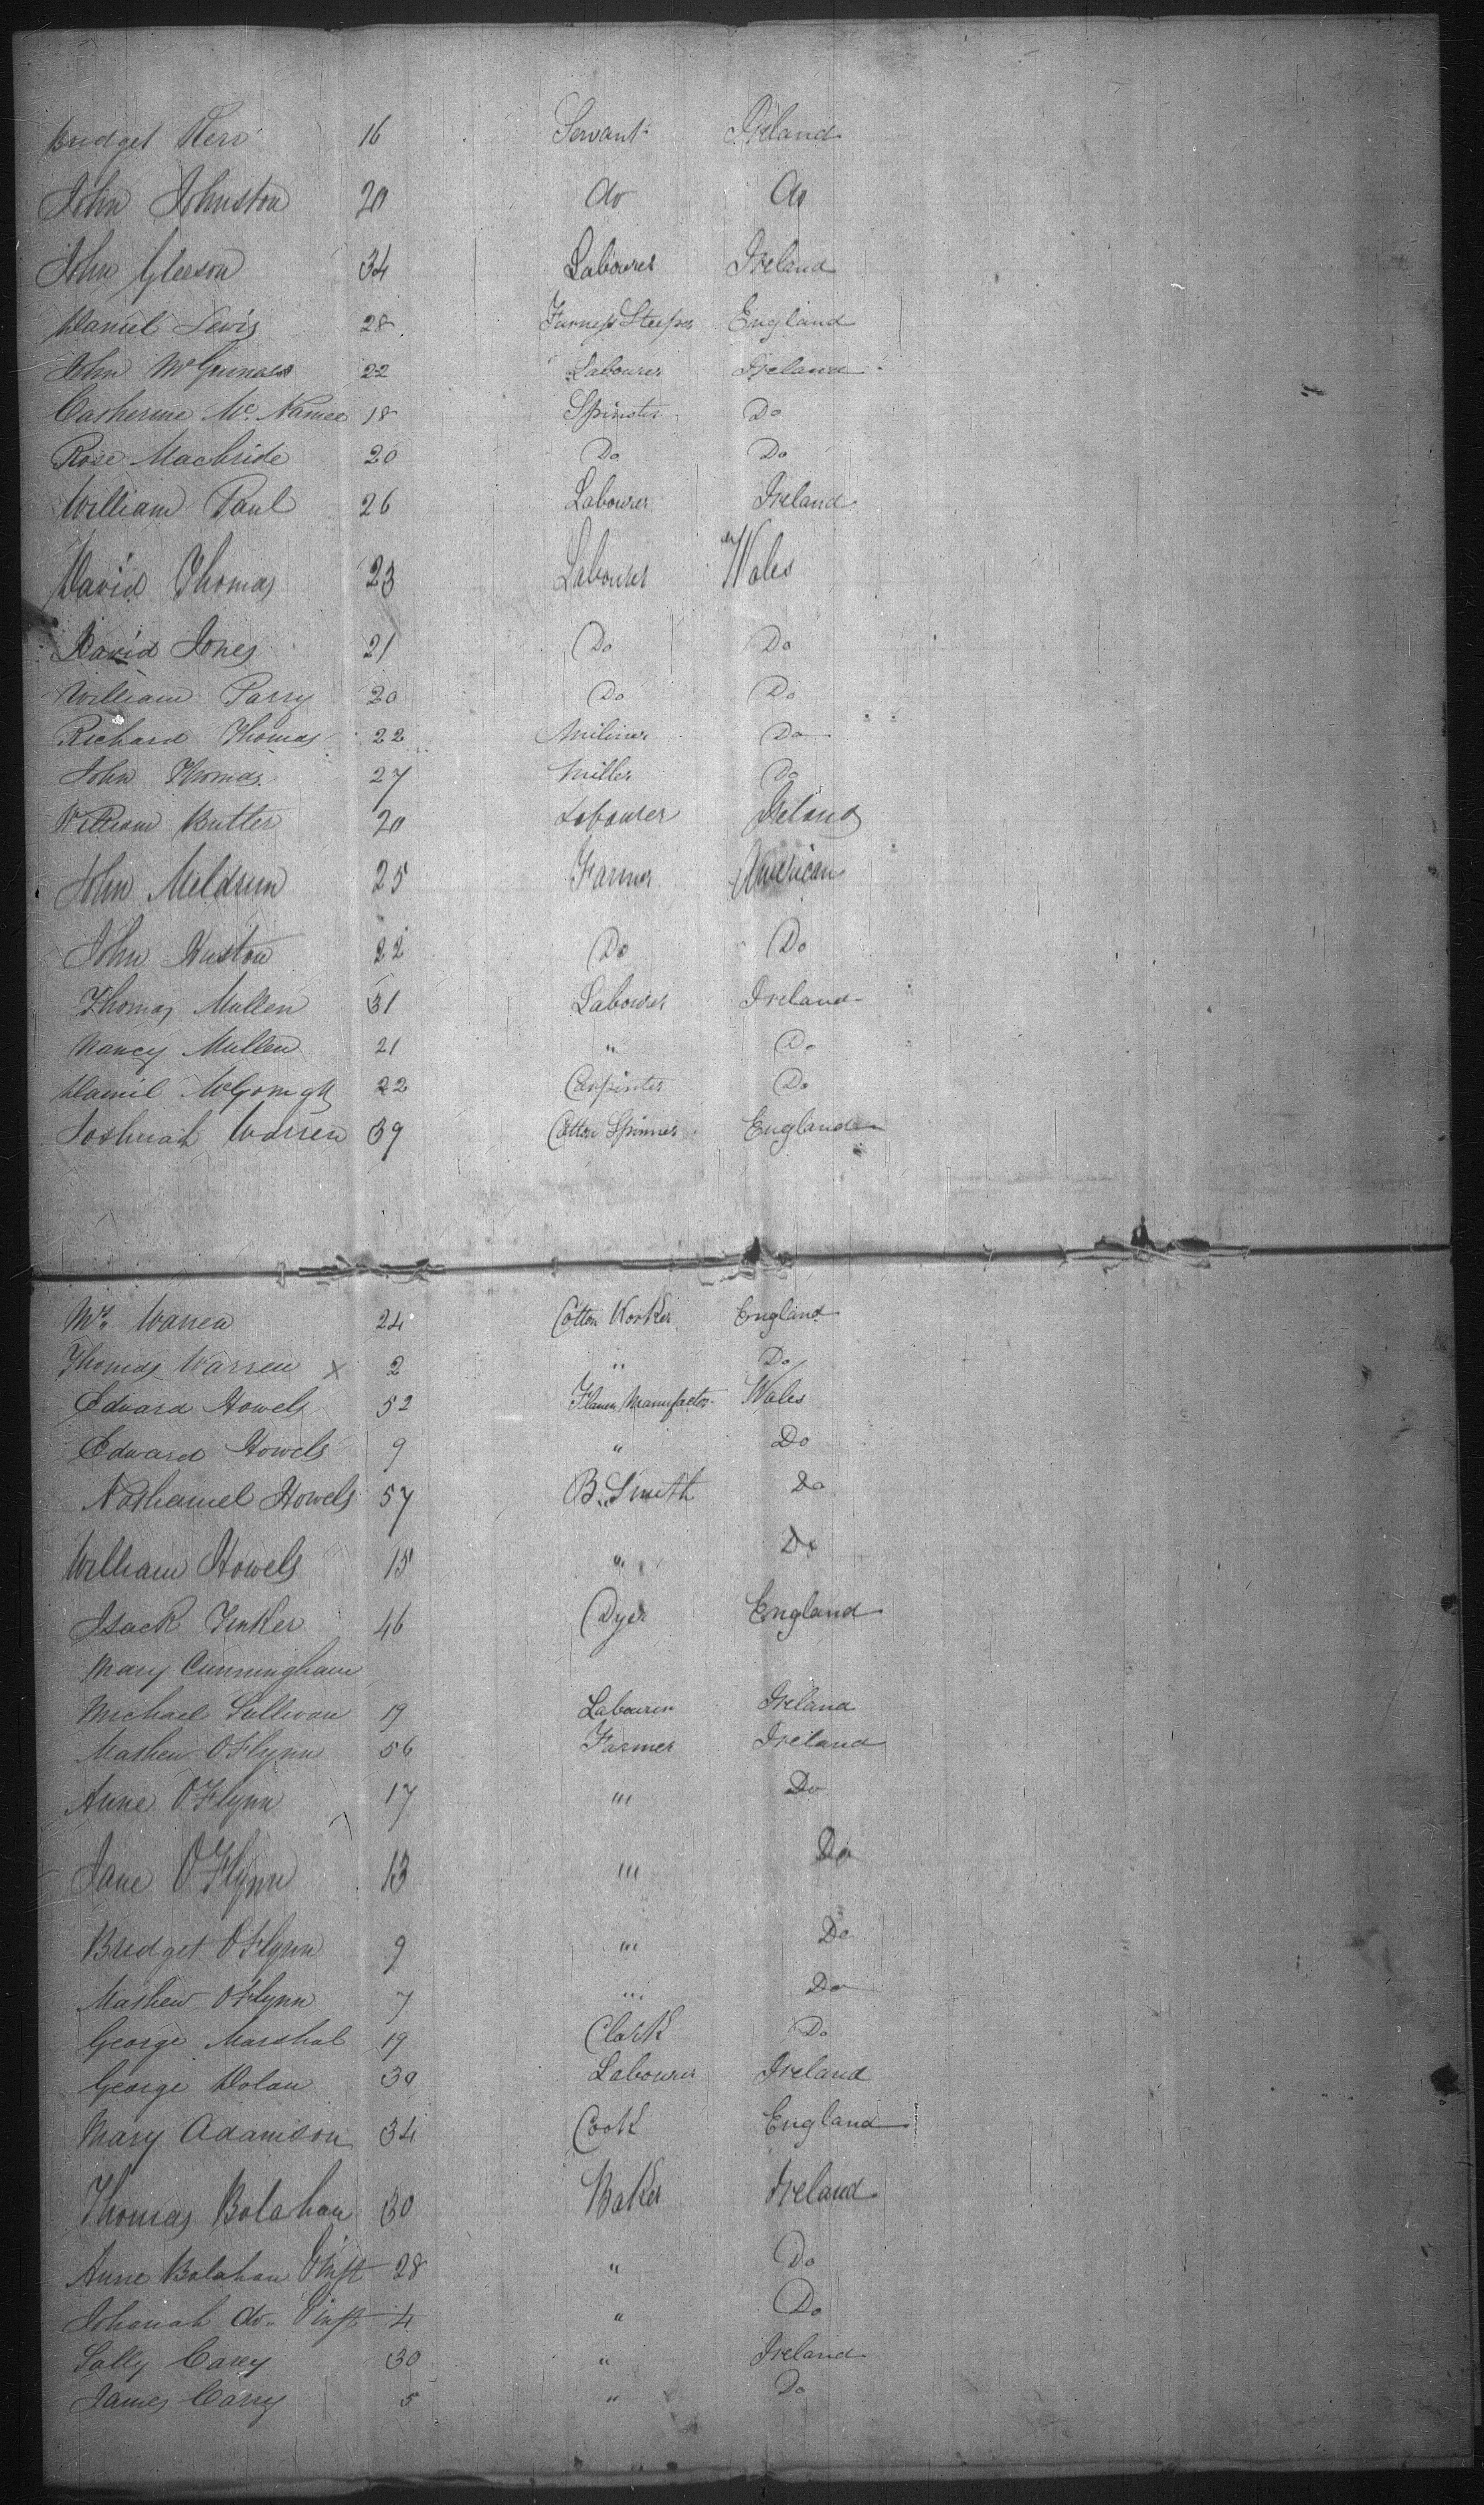 Bridget Kerr 16 Servant Ireland
John Johnston 20 do do
John Gleeson 34 Labourer Ireland
Daniel Lewis 28 England
John 22 Labourer Ireland
Catherine Mc Namee 18 Spinster Do
Rose Macbride 20 Do Do
William Paul 26 Labourer Ireland
David Thomas 23 Labourer Wales
David Jones 21 Do Do
William Parry 20 Do Do
Richard Thomas 22 Miliner Do
John Thomas 27 Miller Do
William Butler 20 Labourer Ireland
John Meldrum 25 Farmer American
John Huston 22 Do Do
Thomas Mullen 31 Labourer Ireland
Nancy Mullen 21 " Do
Daniel 22 Carpinter Do
Joshuah Warren 39 Cotton Spinner England
Warren 24 Cotton Worker England
Thomas Warren x 2 " Do
Edward Howels 52 Manufactor Wales
Edward Howels 9 " Do
Nathaniel Howels 57 B. Smith Do
William Howels 15 " Do
Isack Tinker 46 Dyer England
Mary Cunningham
Michael Sullivan 19 Labourer Ireland
Mathew O Flynn 56 Farmer Ireland
Anne O Flynn 17 "' Do
Jane O Flynn 13 "' Do
Bridget O Flynn 9 "' Do
Mathew O Flynn 7 "' Do
George Marshal 19 Clark Do
George Dolan 30 Labourer Ireland
Mary Adamson 34 Cook England
Thomas Bolahan 30 Baker Ireland
Anne Bolahan 28 " Do
Johanah do 4 " Do
Sally Carey 30 " Ireland
James Carey 5 " Do